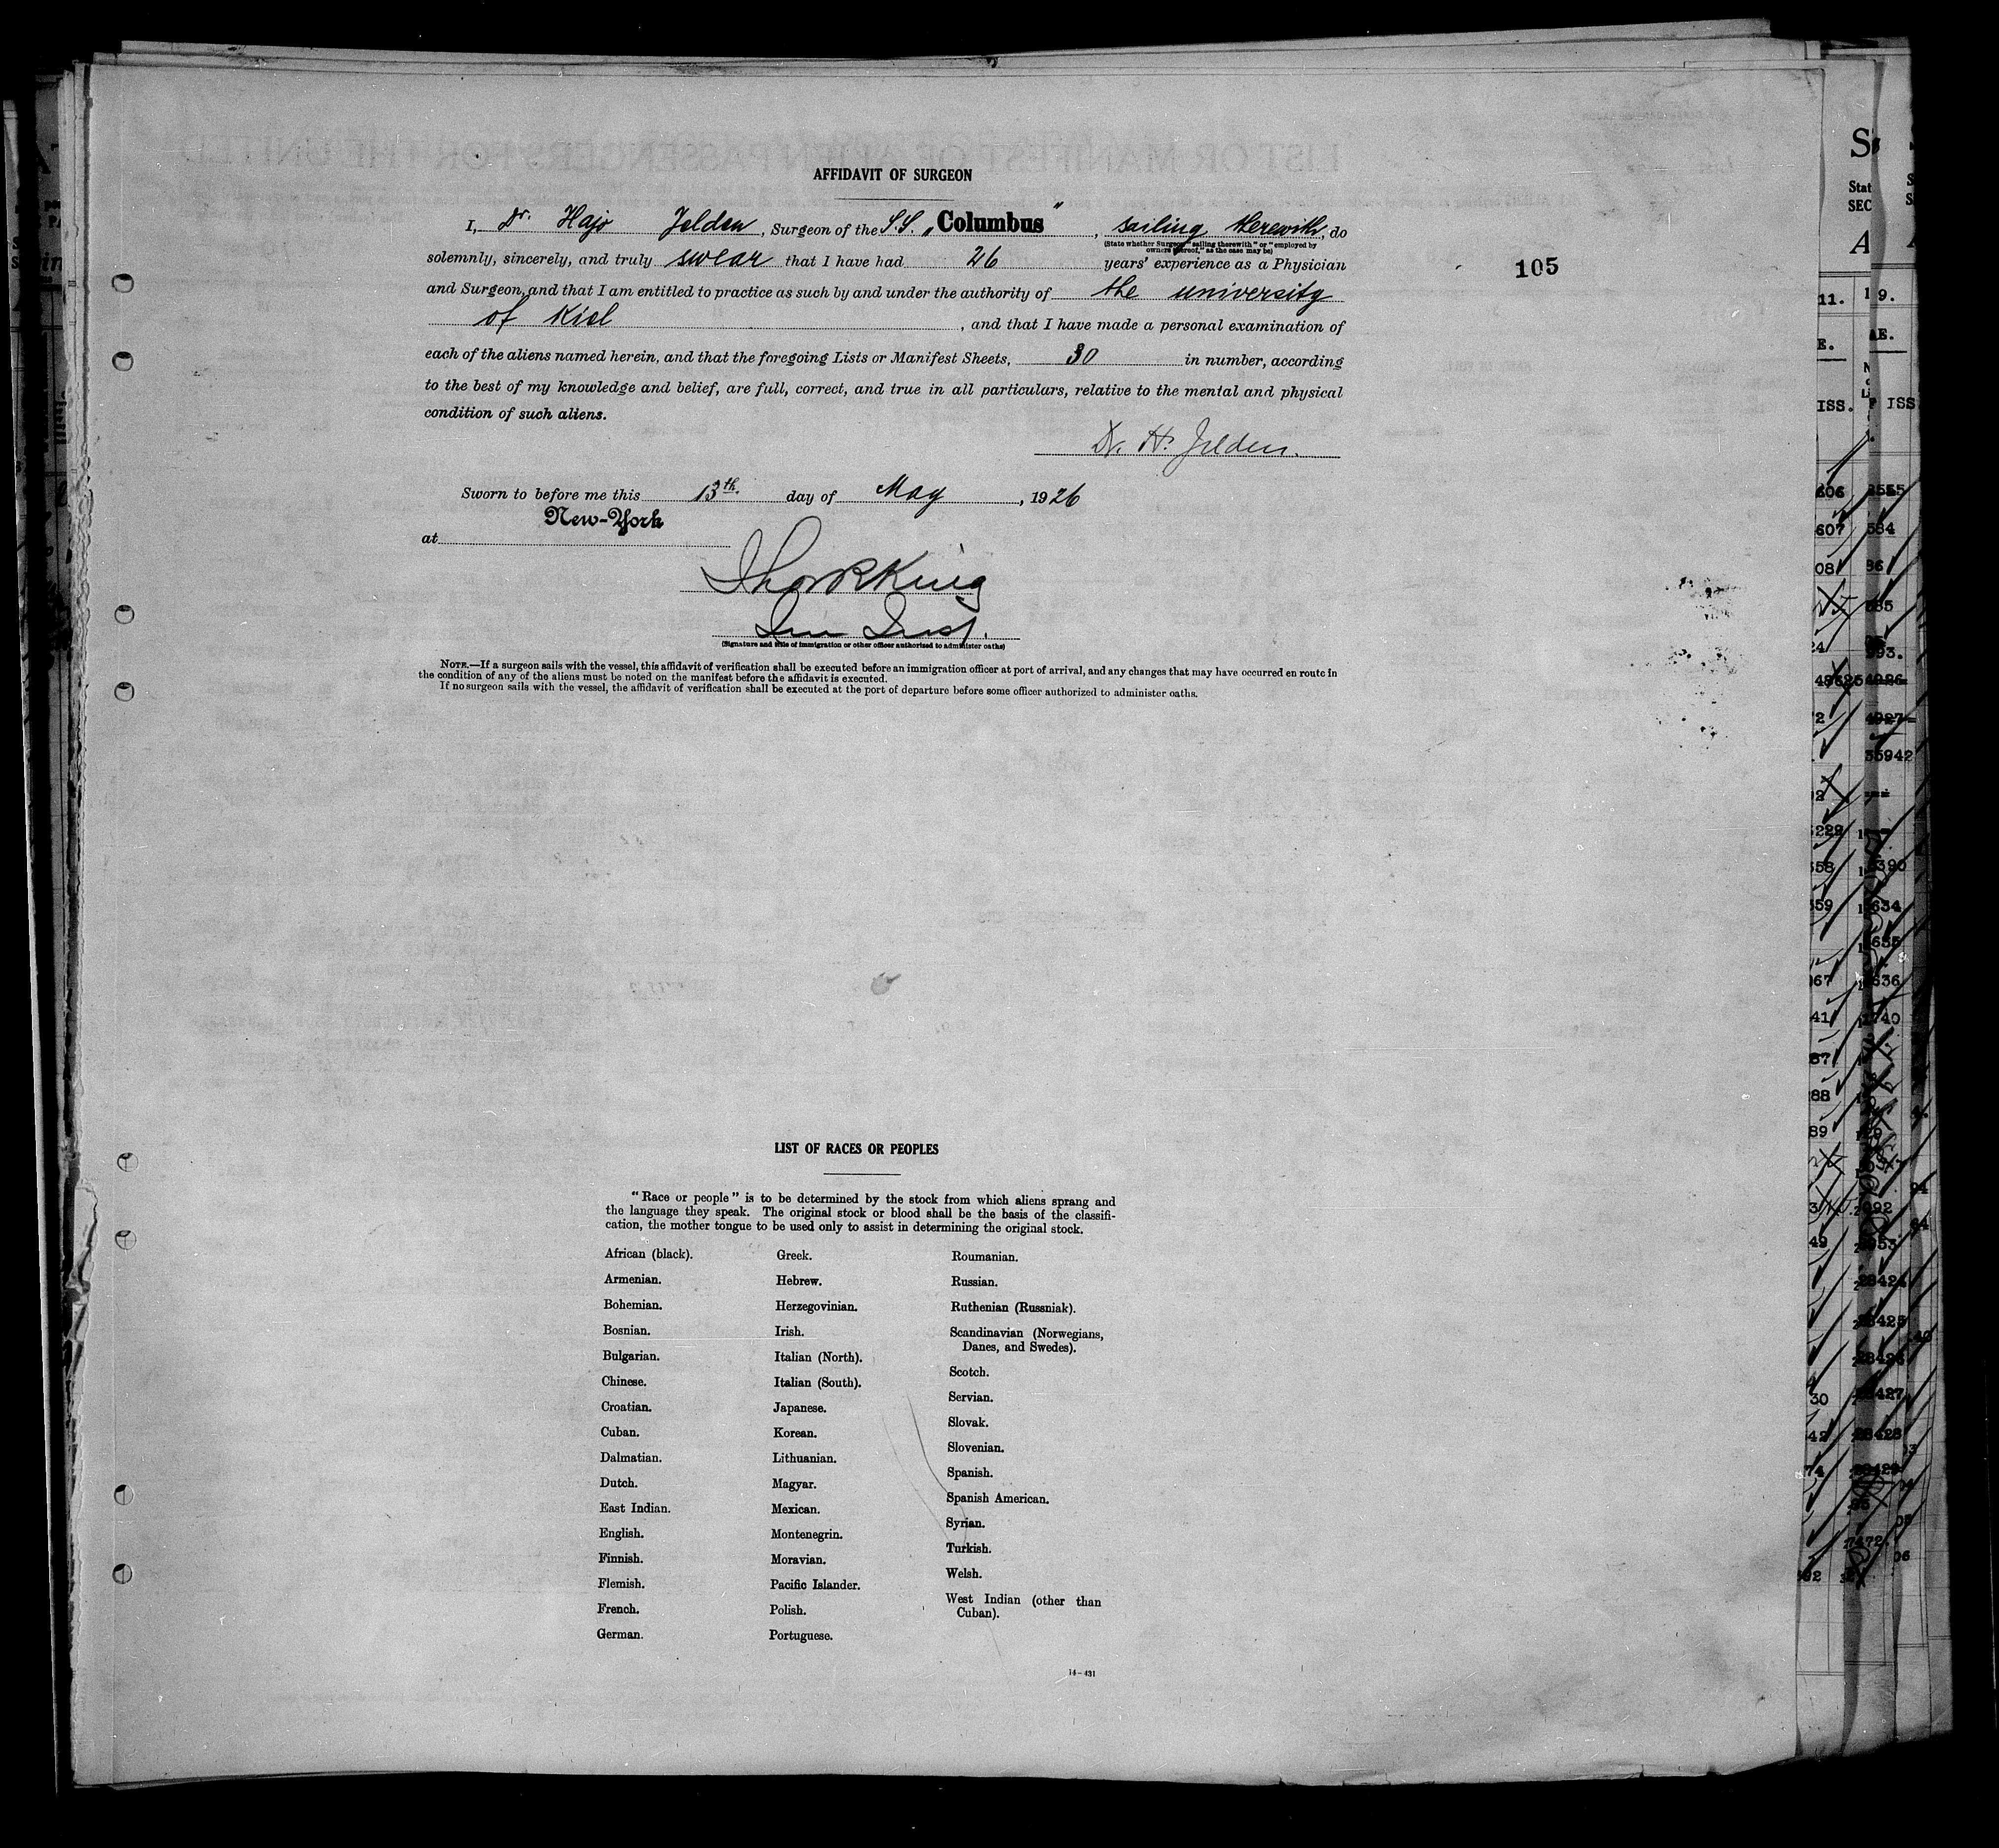 AFFIDAVIT OF SURGEON
I, Dr. Hajo Jelden, Surgeon of the S.S. „Columbus", sailing therewith, do
(State whether Surgeon "sailing therewith" or "employed by
owners thereof," as the case may be)
solemnly, sincerely, and truly swear that I have had 26 years' experience as a Physician
105
and Surgeon, and that I am entitled to practice as such by and under the authority of the university
of Kiel, and that I have made a personal examination of
each of the aliens named herein, and that the foregoing Lists or Manifest Sheets, 30 in number, according
to the best of my knowledge and belief, are full, correct, and true in all particulars, relative to the mental and physical
condition of such aliens.
Dr. H. Jelden.
Sworn to before me this 13th. day of May, 1926
New-York
at
King
(Signature and title of immigration or other officer authorized to administer oaths)
NOTE.—If a surgeon sails with the vessel, this affidavit of verification shall be executed before an immigration officer at port of arrival, and any changes that may have occurred en route in
the condition of any of the aliens must be noted on the manifest before the affidavit is executed.
If no surgeon sails with the vessel, the affidavit of verification shall be executed at the port of departure before some officer authorized to administer oaths.
LIST OF RACES OR PEOPLES
"Race or people" is to be determined by the stock from which aliens sprang and
the language they speak. The original stock or blood shall be the basis of the classifi-
cation, the mother tongue to be used only to assist in determining the original stock.
African (black).
Armenian.
Bohemian.
Bosnian.
Bulgarian.
Chinese.
Croatian.
Cuban.
Dalmatian.
Dutch.
East Indian.
English.
Finnish.
Flemish.
French.
German.
Greek.
Hebrew.
Herzegovinian.
Irish.
Italian (North).
Italian (South).
Japanese.
Korean.
Lithuanian.
Magyar.
Mexican.
Montenegrin.
Moravian.
Pacific Islander.
Polish.
Portuguese.
Roumanian.
Russian.
Ruthenian (Russniak).
Scandinavian (Norwegians,
Danes, and Swedes).
Scotch.
Servian.
Slovak.
Slovenian.
Spanish.
Spanish American.
Syrian.
Turkish.
Welsh.
West Indian (other than
Cuban).
14-431